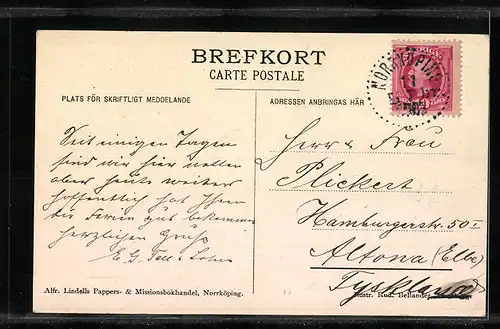 BREFKORT
CARTE POSTALE
PLATS FÖR SKRIFTLIGT MEDDELANDE
ADRESSEN ANBRINGAS HÄR
NORRKÖPING
11
Seit einigen Tagen
sind wir hier
aber heute weiter
hoffentlich hat Ihnen
die Ferien gut bekommen
herzlichen Gruß
E. G.
Herr & Frau
Plickert
Hamburgerstr. 50 I
Altona (Elbe)
Tyskland
Alfr. Lindells Pappers- & Missionsbokhandel, Norrköping.
Rud. Bellander